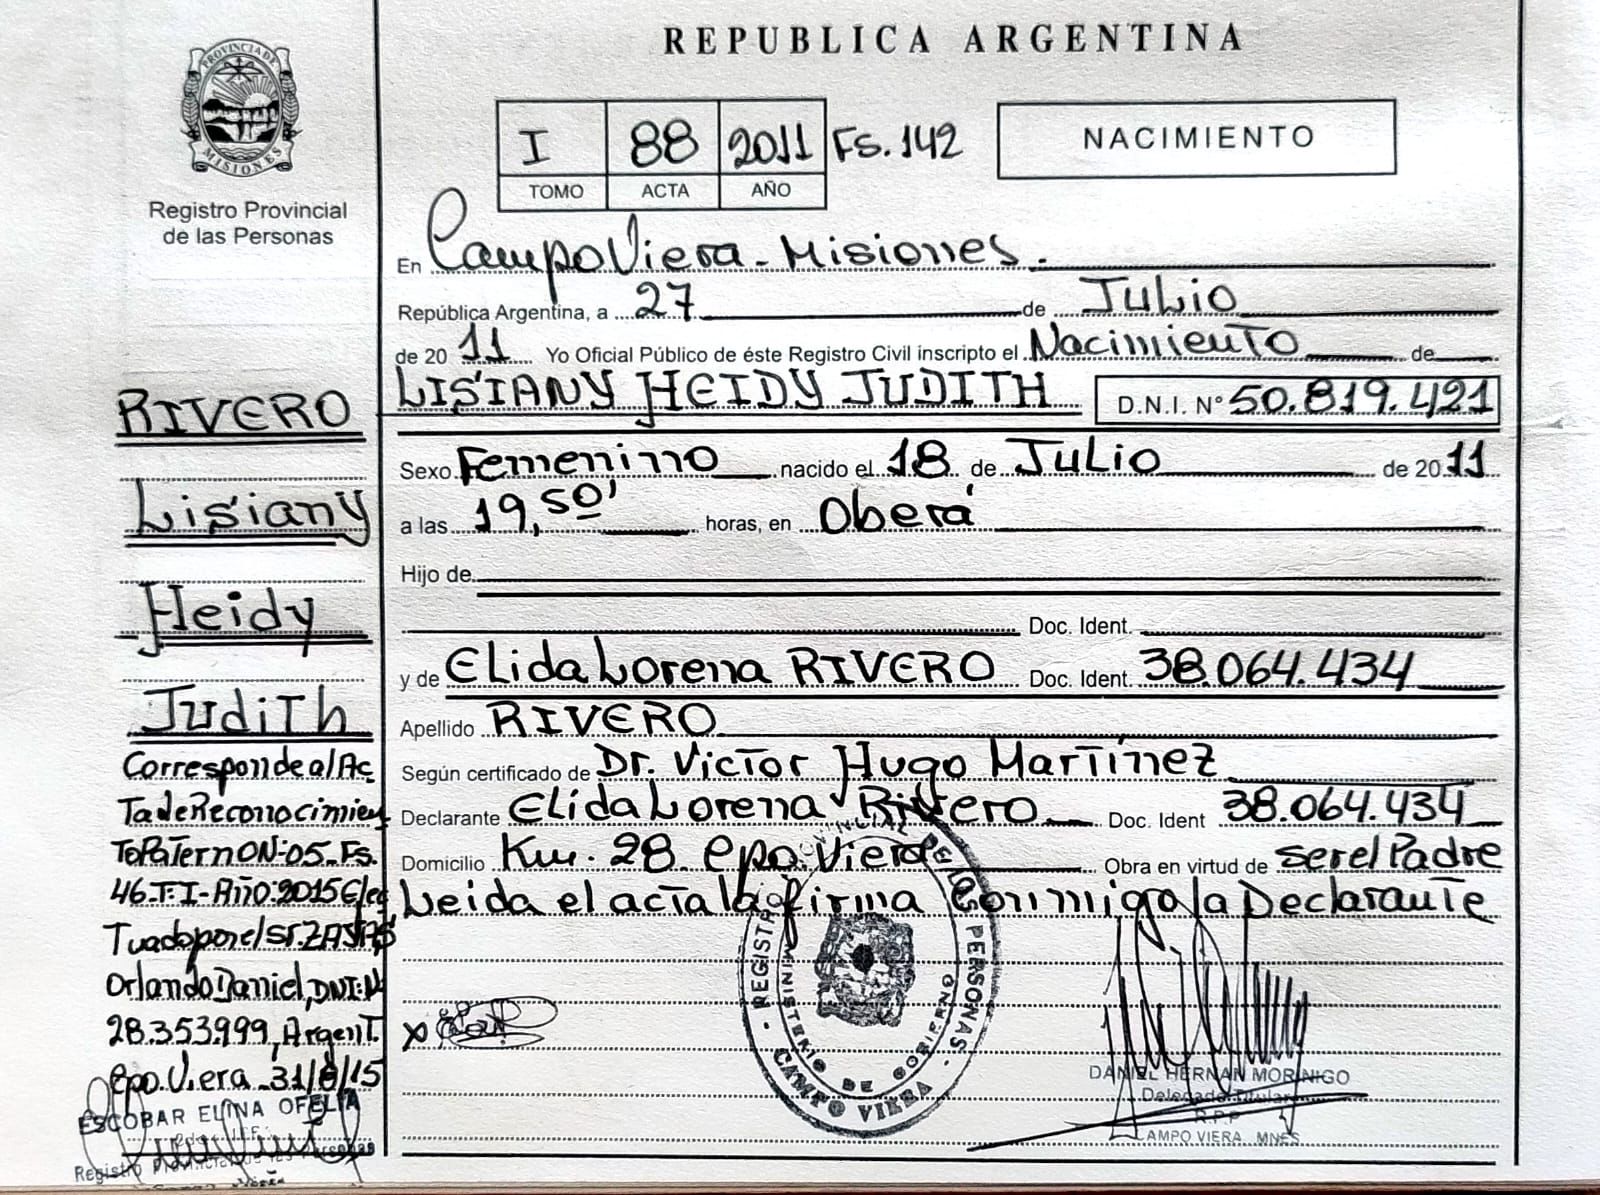 PROVINCIA DE
MISIONES
Registro Provincial
de las Personas
RIVERO
Lisiany
Heidy
Judith
Corresponde al Ac
Ta de Reconocimien
To PaTerno N:05-Fs.
46-T.I-Año:2015 Efec
Tuado por el Sr. ZAYAS
Orlando Daniel, DNI:N
28.353.999, ArgenT.
Cpo. Viera 31/8/15
ESCOBAR ELINA OFELIA
REPUBLICA ARGENTINA
I 88 2011 Fs. 142
TOMO ACTA AÑO
NACIMIENTO
En Campo Viera - Misiones.
República Argentina, a 27 de Julio
de 2011 Yo Oficial Público de éste Registro Civil inscripto el Nacimiento de
LISIANY HEIDY JUDITH D.N.I. N° 50.819.421
Sexo Femenino nacido el 18 de Julio de 2011
a las 19,50' horas, en Oberá
Hijo de
Doc. Ident.
y de Elida Lorena RIVERO Doc. Ident. 38.064.434
Apellido RIVERO
Según certificado de Dr. Victor Hugo Martínez
Declarante Elida Lorena Rivero Doc. Ident 38.064.434
Domicilio Km. 28 Cpo. Viera Obra en virtud de ser el Padre
Leida el acta la firma Conmigo la Declarante
DE LAS PERSONAS -
MINISTERIO DE GOBIERNO
- CAMPO VIERA -
DANIEL HERNAN MORINIGO
Delegado Titular
R.P.P
CAMPO VIERA MNES